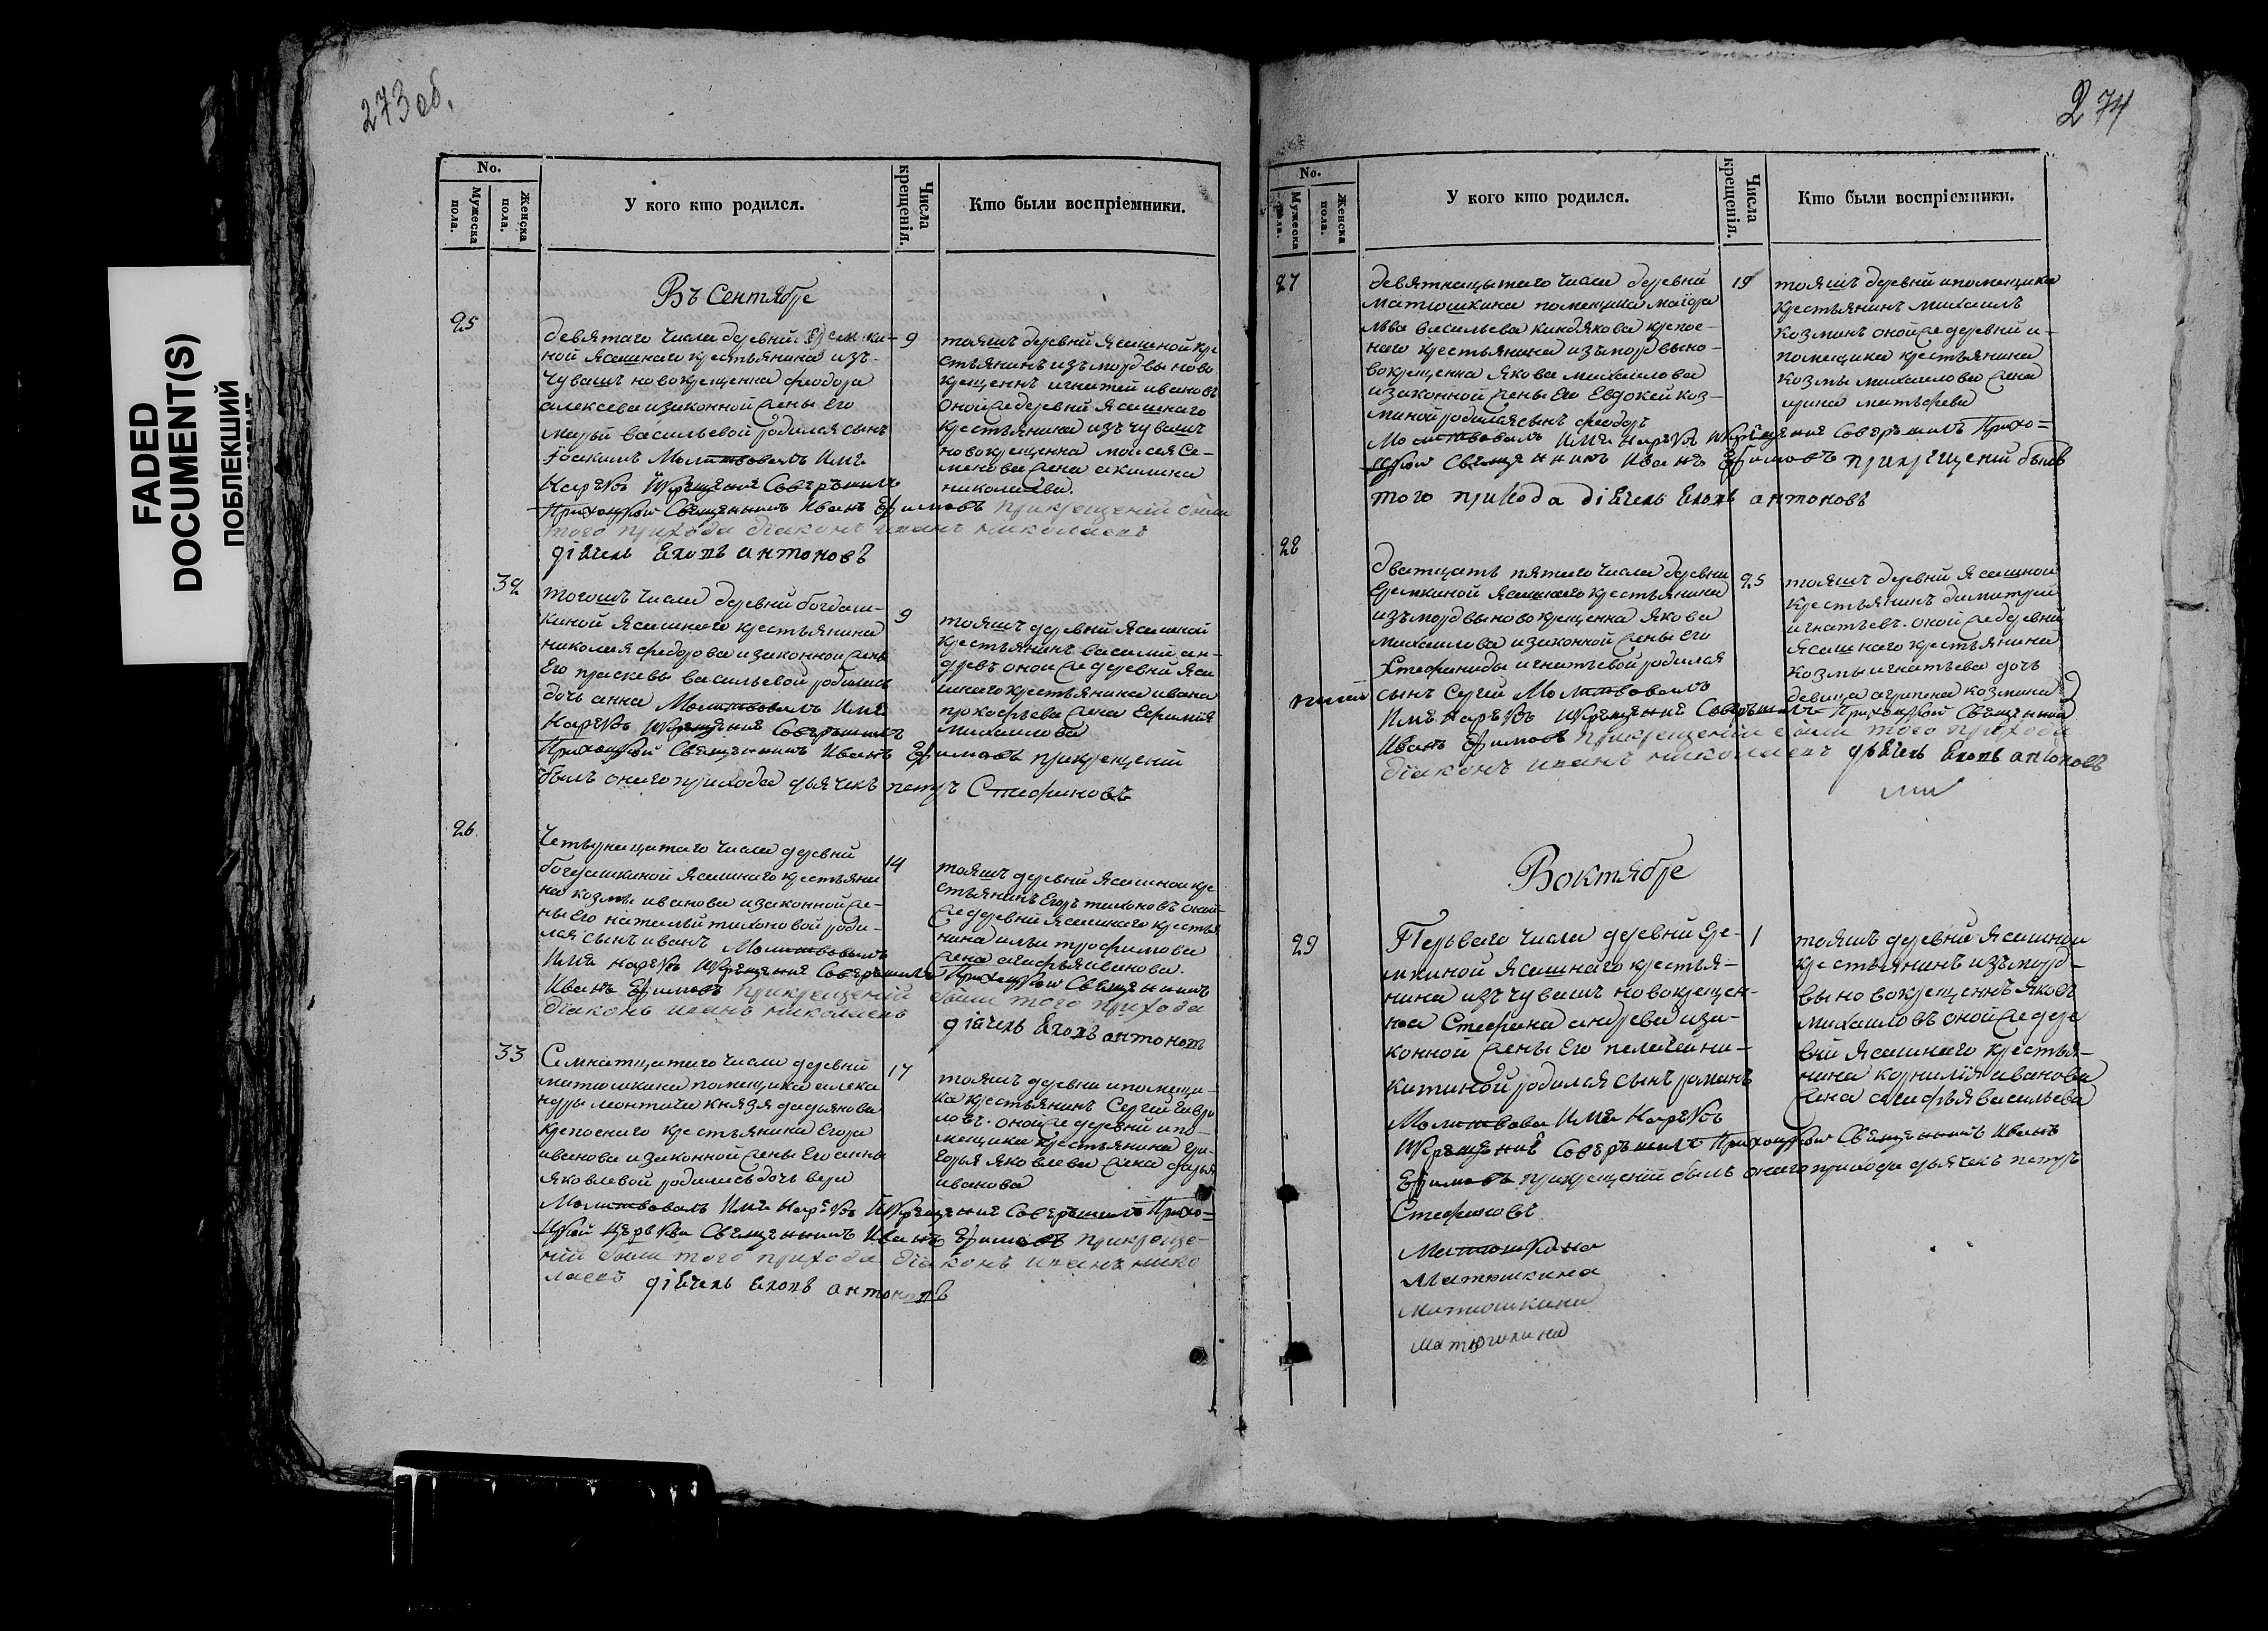 273 об.
FADED
DOCUMENT(S)
ПОБЛЕКШИЙ
No.
Мужеска пола.
Женска пола.
У кого кто родился.
Числа крещенія.
Кто были воспріемники.
Въ Сентябре
25
девятаго числа деревни Еремки-
ной Ясашнаго крестьянина изъ
чувашъ новокрещенна феодора
алексева изаконной жены Его
марьи васильевой родился сынъ
Іоакимъ Молитвовалъ Имя
Нарекъ Икрещение Совершилъ
Приходской Священникъ Иванъ Ефимовъ прикрещений были
того прихода діаконъ иванъ николаевъ
діячекъ Яковъ антоновъ
9
таяшъ деревни Ясашной кре
стьянинъ изъ мордвы ново
крещеннъ игнатей ивановъ
оной же деревни Ясашнаго
крестьянина изъ чувашъ
новокрещенна моисея Се-
менова жена акилина
николаева.
32
тогошъ числа деревни богдаш-
киной Ясашнаго крестьянина
николая федорова изаконной жены
Его прасковьи васильевой родилась
дочь анна Молитвовалъ Имя
Нарекъ Икрещение Совершилъ
Приходской Священникъ Иванъ Ефимовъ прикрещений
былъ онаго прихода дьячекъ петръ Стефановъ
9
таяшъ деревни Ясашной
крестьянинъ василий ан-
древъ оной же деревни Яса
шнаго крестьянина ивана
прокофьева жена Ефимия
михаилова
26
Четырнацатаго числа деревни
богдашкиной Ясашнаго крестьяни
на козмы иванова изаконной же-
ны Его натальи тихоновой роди-
лся сынъ иванъ Молитвовалъ
Имя нарекъ Икрещение Совершилъ Приходской Священникъ
Иванъ Ефимовъ прикрещений были того прихода
діаконъ иванъ николаевъ
діячекъ Яковъ антоновъ
14
таяшъ деревни Ясашной кре
стьянинъ Егоръ тихоновъ оной
же деревни Ясашнаго крестья
нина ильи трофимова
жена агафья иванова.
33
Семнатцатаго числа деревни
матюшкина помещика алекса
ндры леонтича князя дадьянова
крепоснаго крестьянина Егора
иванова изаконной жены Его анны
Яковлевой родилась дочь вера
Молитвовалъ Имя Нарекъ Икрещение Совершилъ Прихо=
дской Церькви Священникъ Иванъ Ефимовъ прикреще-
ний были того прихода діаконъ иванъ нико
лаевъ діячекъ Яковъ антоновъ
17
таяшъ деревни и помещи-
ка крестьянинъ Сергей Гаври
ловъ. оной же деревни и по-
мещика крестьянина Гри-
горья Яковлева жена дарья
иванова
274
No.
Мужеска пола.
Женска пола.
У кого кто родился.
Числа крещенія.
Кто были воспріемники.
27
девятнацытаго числа деревни
матюшкина помещика маіора
льва васильева киндякова крепос-
наго крестьянина изъ мордвы но-
вокрещенна Якова михаилова
изаконной жены Его Евдокеи коз-
миной родился сынъ феодоръ
Молитвовалъ Имя Нарекъ Икрещение Совершилъ Прихо=
дской Священникъ Иванъ Ефимовъ прикрещений былъ
того прихода діячекъ Яковъ антоновъ
19
таяшъ деревни и помещика
крестьянинъ михаилъ
козминъ оной же деревни и-
помещика крестьянина
козмы михаилова жена
ирина матвеева
28
дватцать пятаго числа деревни
Еремкиной Ясашнаго крестьянина
изъ мордвы новокрещенна Якова
михаилова изаконной жены Его
Стефаниды игнатьевой родился
сынъ Сергий Молитвовалъ
Имя нарекъ Икрещение Совершилъ Приходской Священникъ
Иванъ Ефимовъ прикрещений были того прихода
діаконъ иванъ николаевъ дьячекъ Яковъ антоновъ
25
таяшъ деревни Ясашной
крестьянинъ димитрий
игнатьевъ. оной же деревни
Ясашнаго крестьянина
козмы игнатьева дочь
девица агрипена козмина
Воктябре
29
Перьваго числа деревни Ере-
мкиной Ясашнаго крестья-
нина изъ чувашъ новокрещен-
на Стефана андрева иза-
конной жены Его пелагеи ни-
китиной родился сынъ романъ
Молитвова Имя Нарекъ
Икрещение Совершилъ Приходской Священникъ Иванъ
Ефимовъ прикрещений былъ онаго прихода дьячекъ петръ
Стефановъ
1
таяшъ деревни Ясашной
крестьянинъ изъ морд-
вы новокрещеннъ Яковъ
михаиловъ оной же дере
вни Ясашнаго крестья-
нина корнилия иванова
жена агафья васильева
Матюшкина
Матюшкина
Матюшкина
Матюшкина